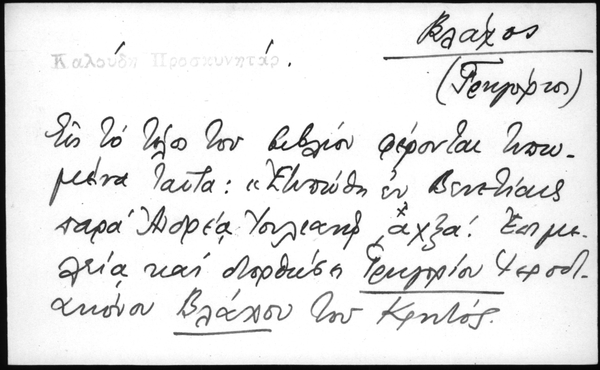 Βλάχος
Καλούδη Προσκυνητάρ.
(Γρηγόριος)
Εἰς τό τέλος του βιβλίου φέρονται τυπω-
μένα ταῦτα: «Ἐτυπώθη ἐν Βενετίαις
παρά Ἀνδρέᾳ Ἰουλιανῷ ͵αχξα΄. Ἐπιμε-
λείᾳ καί διορθώσει Γρηγορίου Ἱεροδι-
ακόνου Βλάχου του Κρητός.